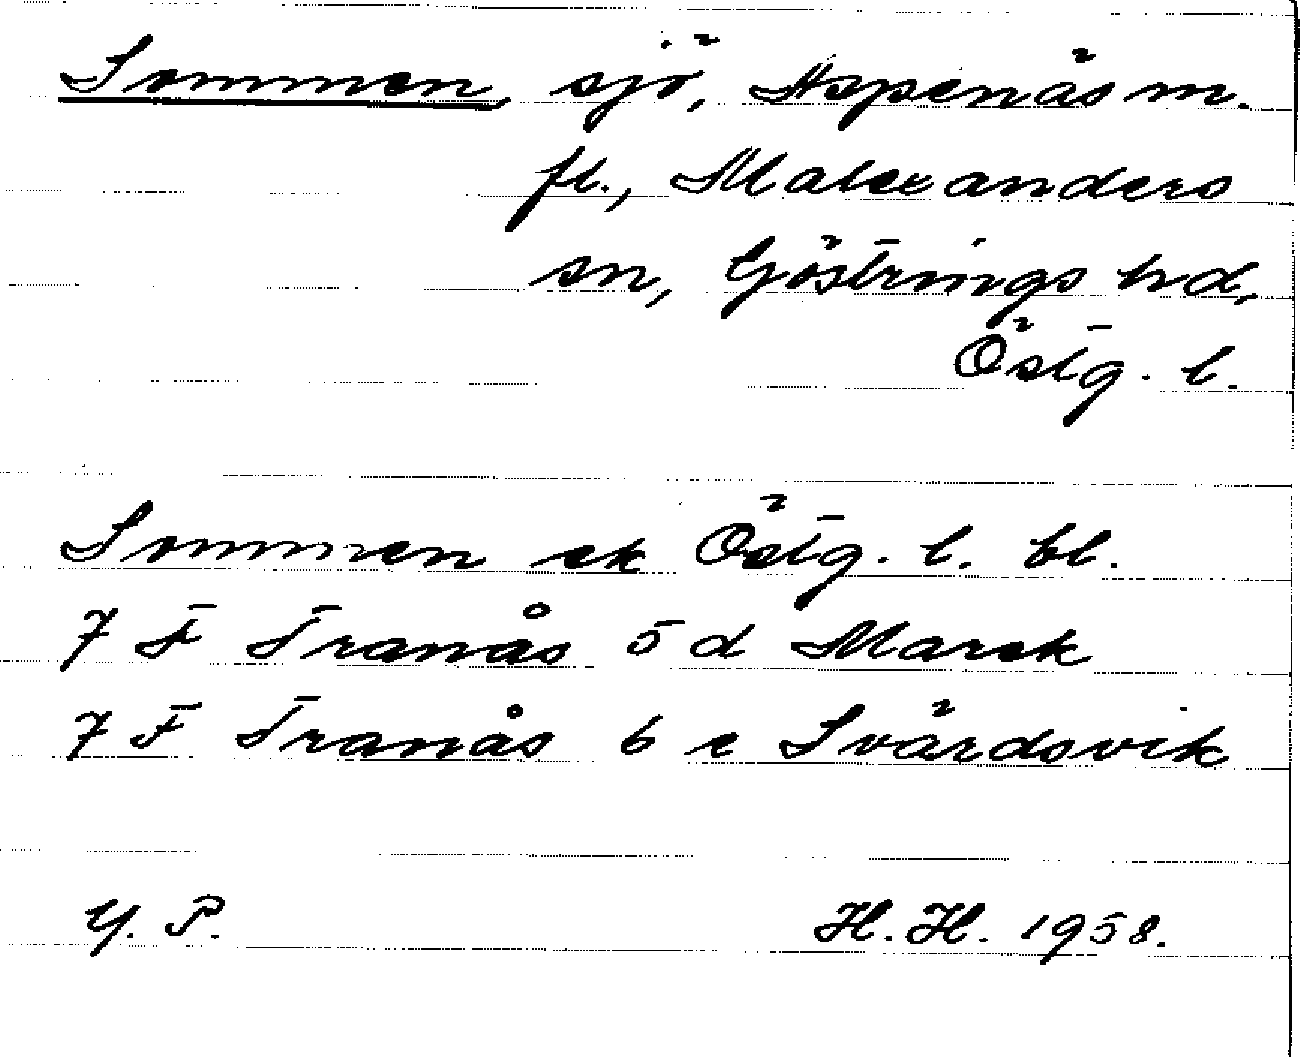 Sommen, sjö, Aspenäs m.
fl., Malexanders
sn, Göstrings hd,
Östg. l.
Sommen ek Östg. l. bl.
7 F Tranås 5 d Marek
7 F Tranås 6 e Svärdsvik
Y. P. H.H. 1958.